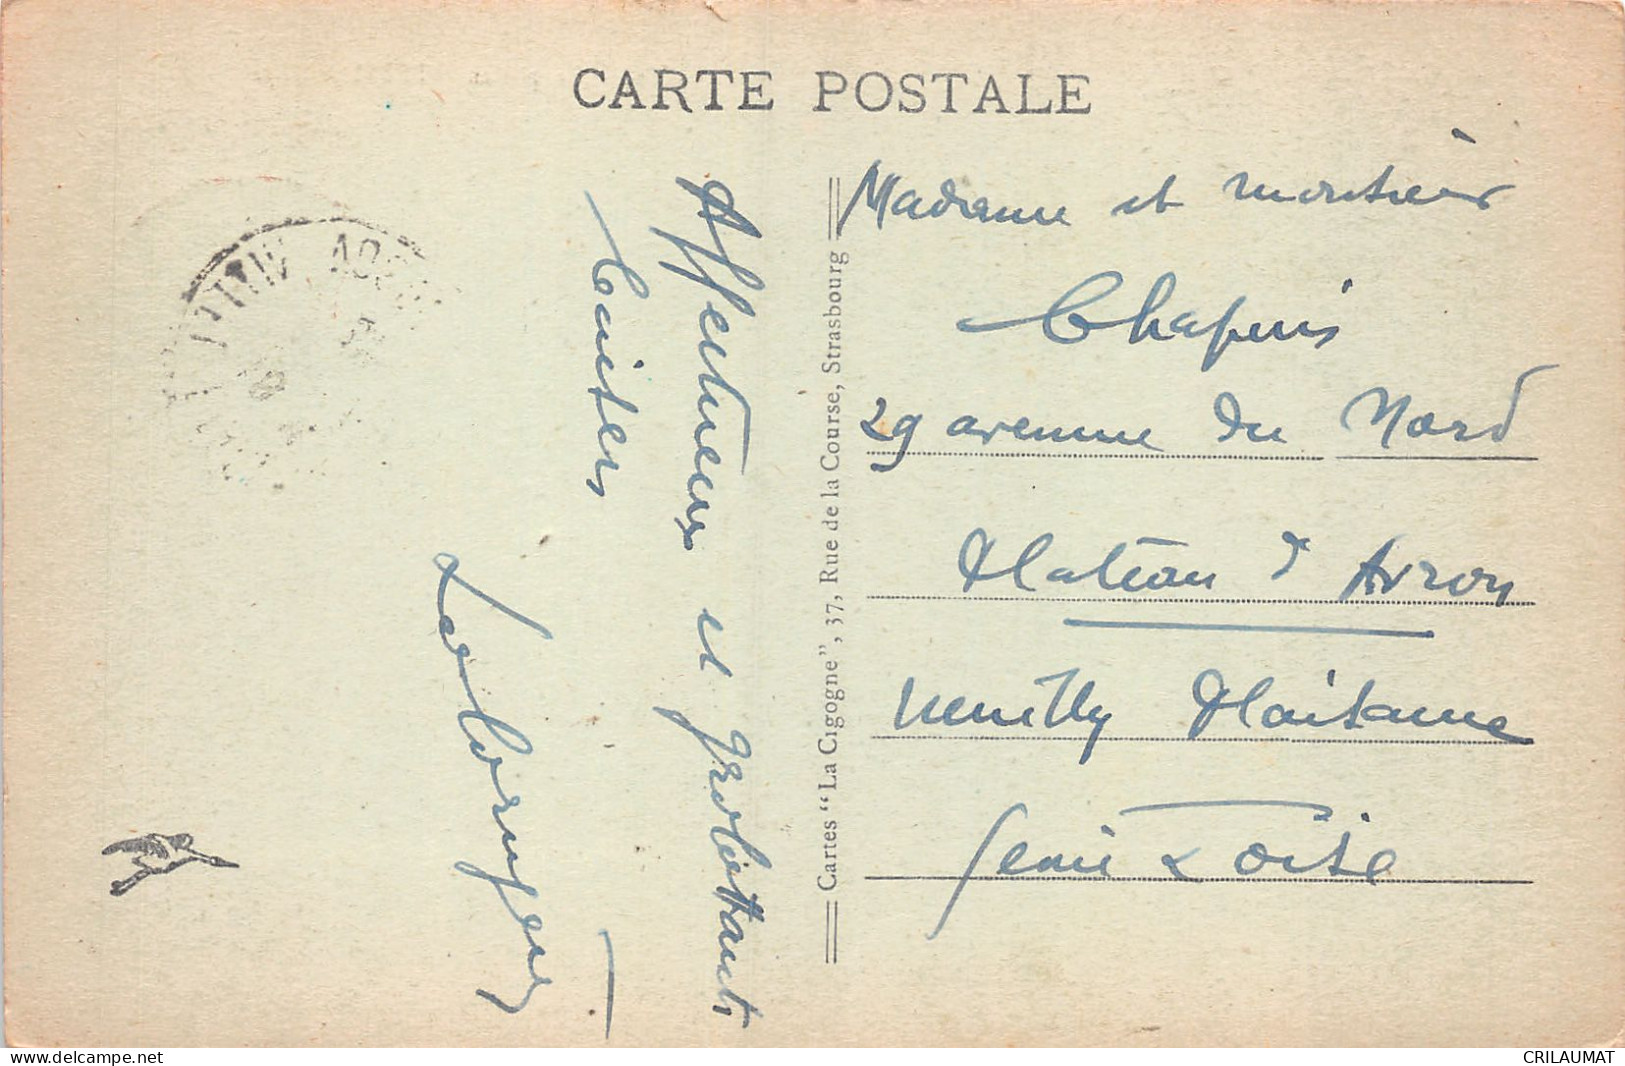 CARTE POSTALE
Affectueux et grelottants
baisers
Cartes “La Cigogne”, 37, Rue de la Course, Strasbourg
Madame et monsieur
Chapuis
29 avenue du Nord
Plateau d'Avron
Neuilly Plaisance
Seine & Oise
delcampe.net
CRILAUMAT